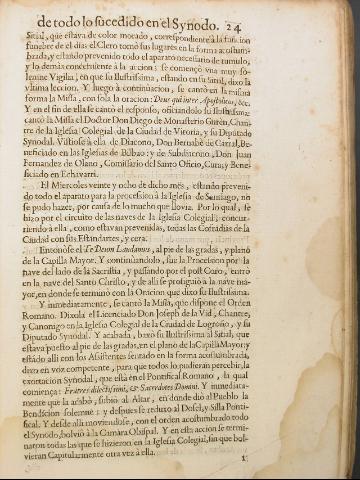 de todo lo sucedido en el Synodo. 24
Sitial, que estava de color morado, correspondiente à la funcion
funebre de el dia: el Clero tomò sus lugares en la forma acostum-
brada, y estando prevenido todo el aparato necesario de tumulo,
y lo demàs concerniente à la funcion: se començò una muy so-
lemne Vigilia; en que su Ilustrissima, estando en su Sitial, dixo la
vltima leccion. Y luego à continuacion, se cantò en la misma
forma la Missa, con sola la oracion: Deus qui inter Apostolicos, &c.
Y en el fin de ella se cantò el responso, oficiandolo su Ilustrissima:
cantò la Missa el Doctor Don Diego de Monasterio Guren, Chan-
tre de la Iglesia Colegial de la Ciudad de Vitoria, y su Diputado
Synodal. Vistiose à ella de Diacono, Don Bernabè de Garral, Be-
neficiado en las Iglesias de Bilbao: y de Subdiacono, Don Juan
Fernandez de Olano, Comissario del Santo Oficio, Cura, y Bene-
ficiado en Echavarri.
El Miercoles veinte y ocho de dicho mès, estando preveni-
do todo el aparato para la procession à la Iglesia de Santiago, no
se pudo hazer, por causa de lo mucho que llovia. Por lo qual, se
hizo por el circuito de las naves de la Iglesia Colegial; concur-
riendo à ella, como estavan prevenidas, todas las Cofradias de la
Ciudad con sus Estandartes, y cera.
Entonòse el Te Deum Laudamus, al pie de las gradas, y plano
de la Capilla Mayor. Y continuandolo, fue la Procession por la
nave del lado de la Sacristia, y passando por el post Coro, entrò
en la nave del Santo Christo, y de alli se prosiguiò à la nave ma-
yor, en donde se terminò con la Oracion que dixo su Ilustrissima.
Y inmediatamente, se cantò la Missa, que dispone el Orden
Romano. Dixola el Licenciado Don Joseph de la Vid, Chantre,
y Canonigo en la Iglesia Colegial de la Ciudad de Logroño, y su
Diputado Synodal. Y acabada, baxò su Ilustrissima al Sitial, que
estava puesto al pie de las gradas, en el plano de la Capilla Mayor: y
estando alli con los Assistentes sentado en la forma acostumbrada,
dixo en voz competente, para que todos lo pudieran percebir, la
exortacion Synodal, que està en el Pontifical Romano, la qual
comiença: Fratres dilectissimi, & Sacerdotes Domini. Y inmediata-
mente que la acabò, subiò al Altar, en donde diò al Pueblo la
Bendicion solemne: y despues se reduxo al Dosel, y Silla Ponti-
fical. Y desde alli moviendose, con el orden acostumbrado todo
el Synodo, bolviò à la Camara Obispal. Y en esta accion se termi-
naron todas las que se hizieron en la Iglesia Colegial, sin que bol-
vieran Capitularmente otra vez à ella.